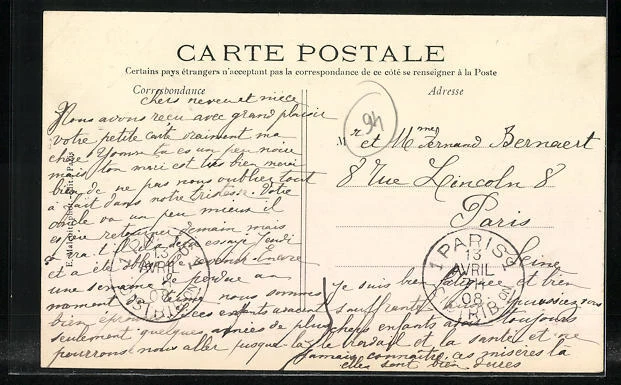 CARTE POSTALE
Certains pays étrangers n'acceptant pas la correspondance de ce côté se renseigner à la Poste
Correspondance
Adresse
chers neveu et nièce
Nous avons reçu avec grand plaisir
votre petite carte vraiment ma
chère Yvonne tu es un peu noire
mais ton mari est très bien merci
bien de ne pas nous oublier tout
à fait dans notre tristesse Votre
oncle va un peu mieux il
retourner demain mais
essayé Jeudi
et a été obligé de revenir encore
une semaine de perdue au
moment du nous sommes
bien ces enfants avaient
seulement quelques années de plus
pourrons nous aller jusque là
je suis bien fatiguée et bien
souffrante puissiez vous
chers enfants avoir toujours
le travail et la santé et ne
jamais connaître les misères la
elles sont bien dures
94
Mr et Mme Fernand Bernaert
8 Rue Lincoln 8
Paris
Seine
1 PARIS 1
13
AVRIL
08
DISTRIBON
13
AVRIL